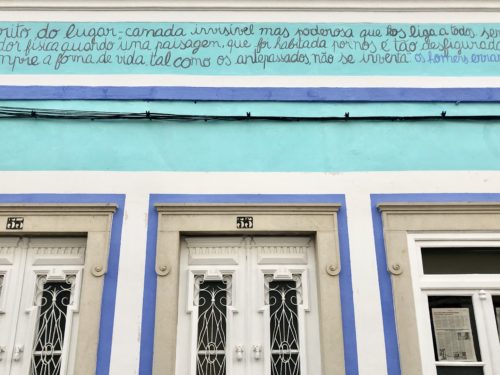 rito do lugar-camada invisível mas poderosa que nos liga a todos. sen
dor física quando uma paisagem, que foi habitada por nós é tão desfigurada
mpre a forma de vida tal como os antepassados, não se inventa os homens
55 53